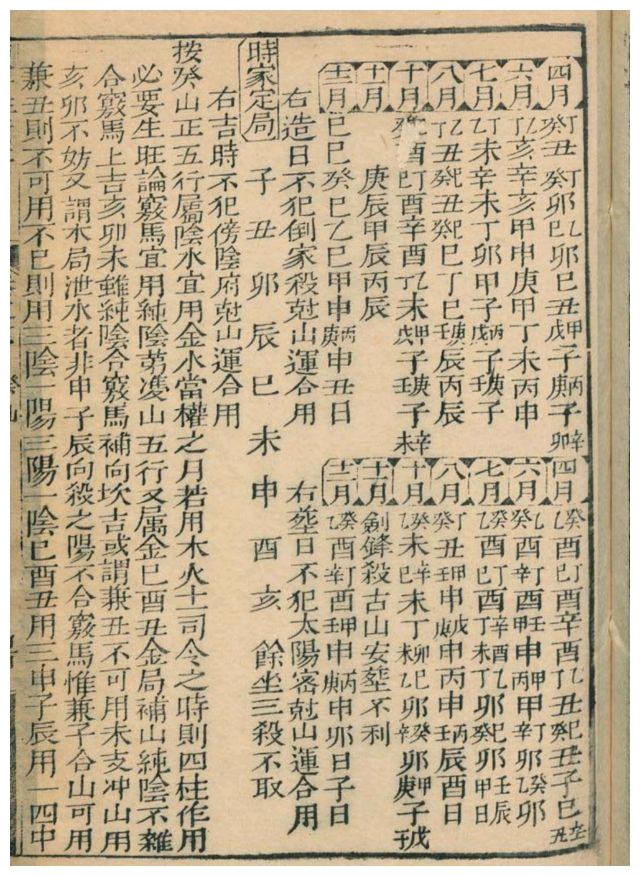 四月 丁癸丑丁癸卯乙卯巳丑甲戊子丙庚子辛卯
六月 乙丁亥辛亥甲申庚甲丁未丙申
七月 乙丁未辛未丁卯甲子丙戊子庚壬子
八月 乙丁丑己癸丑己癸巳丁巳庚壬辰丙辰
十月 酉丁己酉辛酉乙丁未甲戊子庚壬子辛未
十一月 庚辰甲辰丙辰
十二月 己巳癸巳乙巳甲申丙庚申丑日
右造日不犯倒家殺尅山運合用
四月 癸乙酉丁己酉辛酉乙丁丑己癸丑子巳
六月 乙癸酉丁辛酉壬甲申甲丙申丁辛卯癸乙卯
七月 癸乙酉丁己酉辛丁酉未乙丁卯己癸卯甲日壬辰
八月 丁癸丑甲壬申戊庚申丙申丙壬辰酉日
十月 癸乙未辛己未丁未卯乙己卯辛癸卯甲庚子壬戊
十一月 劍鋒殺占山安塟不利
十二月 癸乙酉丁辛酉甲壬申丙庚申卯日子日
右塟日不犯太陽密尅山運合用
時家定局 子丑卯辰巳未申酉亥 餘坐三殺不取
右吉時不犯傍陰府尅山運合用
按癸山正五行屬陰水宜用金水當權之月若用木火土司令之時則四柱作用
必要生旺論竅馬宜用純陰茀凌山五行又属金巳酉丑金局補山純陰不雜
合竅馬上吉亥卯未雖純陰合竅馬補向坎吉或謂兼丑不可用未支冲山用
亥卯不妨又謂木局泄水者非申子辰向殺之陽不合竅馬惟兼子合山可用
兼丑則不可用不已則用三陰一陽三陽一陰巳酉丑用三申子辰用一四中